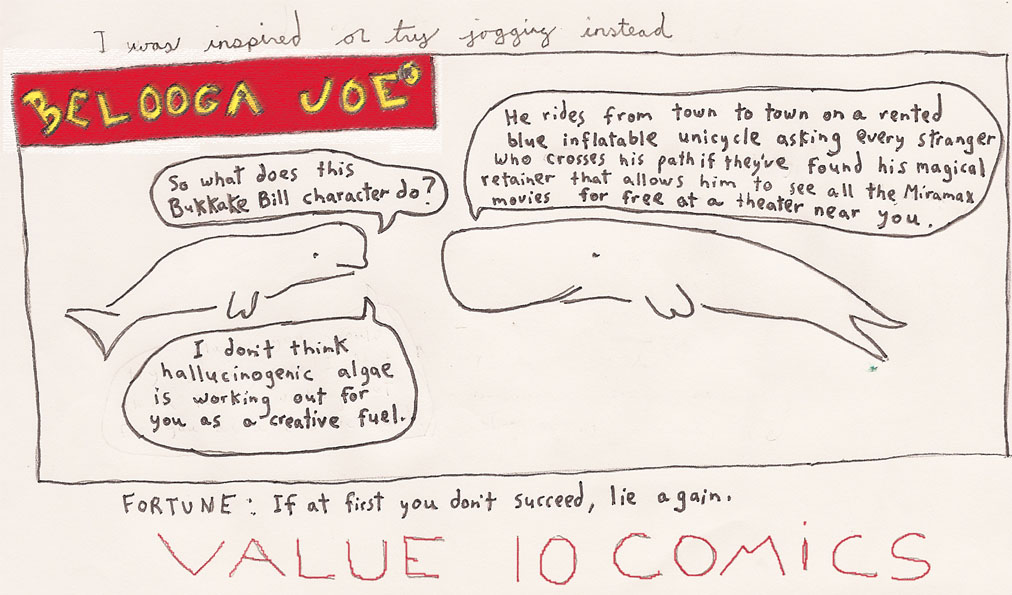 I was inspired or try jogging instead
BELOOGA JOE
So what does this
Bukkake Bill character do?
He rides from town to town on a rented
blue inflatable unicycle asking every stranger
who crosses his path if they've found his magical
retainer that allows him to see all the Miramax
movies for free at a theater near you.
I don't think
hallucinogenic algae
is working out for
you as a creative fuel.
FORTUNE: If at first you don't succeed, lie again.
VALUE 10 COMICS